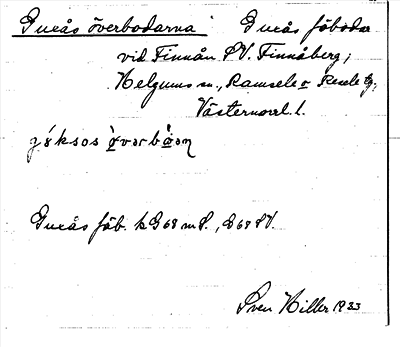 Guxås överbodarna Guxås fäbodar
vid Finnån SV. Finnåberg;
Helgums sn., Ramsele o Resele tg.,
Västernorrl. l.
Guxås fäb. k G68 m S., G 68 SV.
Sven Hiller 1933